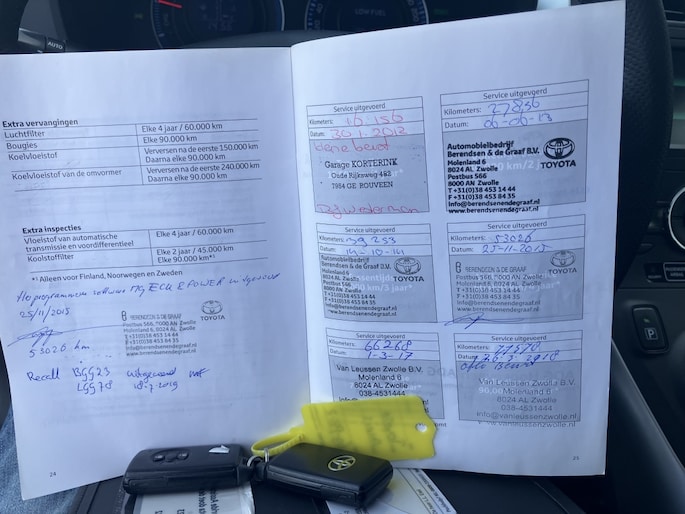 AUTO
LOW FUEL
Extra vervangingen
Luchtfilter Elke 4 jaar / 60.000 km
Bougies Elke 90.000 km
Koelvloeistof Verversen na de eerste 150.000 km
Daarna elke 90.000 km
Koelvloeistof van de omvormer Verversen na de eerste 240.000 km
Daarna elke 90.000 km
Extra inspecties
Vloeistof van automatische transmissie en voordifferentieel Elke 4 jaar / 60.000 km
Koolstoffilter Elke 2 jaar / 45.000 km
Elke 90.000 km*¹
*¹ Alleen voor Finland, Noorwegen en Zweden
software MG ECU & POWER
25/11/2015
53026 km
BERENDSEN & DE GRAAF
Postbus 566, 8000 AN Zwolle
Molenlend 6, 8024 AL Zwolle
T +31(0)38 453 14 44
F +31(0)38 453 84 35
www.berendsenendegraaf.nl
TOYOTA
Recall BGG23
24
Service uitgevoerd
Kilometers: 10.156
Datum: 30.1.2012
Garage KORTERINK
Oude Rijksweg 482
7954 GE ROUVEEN
Service uitgevoerd
Kilometers:
Datum:
Automobielbedrijf
Berendsen & de Graaf B.V.
Molenlend 6
8024 AL Zwolle
Postbus 566
8000 AN Zwolle
T +31(0)38 453 14 44
F +31(0)38 453 84 35
info@berendsenendegraaf.nl
www.berendsenendegraaf.nl
TOYOTA
Service uitgevoerd
Kilometers: 39253
Datum: 14-10-14
Automobielbedrijf
Berendsen & de Graaf B.V.
Molenlend 6
8024 AL Zwolle
T +31(0)38 453 14 44
F +31(0)38 453 84 35
info@berendsenendegraaf.nl
TOYOTA
Service uitgevoerd
Kilometers: 53026
Datum: 25-11-2015
BERENDSEN & DE GRAAF
Postbus 566, 8000 AN Zwolle
Molenlend 6, 8024 AL Zwolle
T +31(0)38 453 14 44
F +31(0)38 453 84 35
info@berendsenendegraaf.nl
www.berendsenendegraaf.nl
TOYOTA
Service uitgevoerd
Kilometers: 66268
Datum: 1-3-17
Van Leussen Zwolle B.V.
Molenlend 6
8024 AL Zwolle
038-4531444
Info@vanleussenzwolle.nl
Service uitgevoerd
Kilometers:
Datum:
Van Leussen Zwolle B.V.
Molenlend 6
8024 AL Zwolle
038-4531444
Info@vanleussenzwolle.nl
P